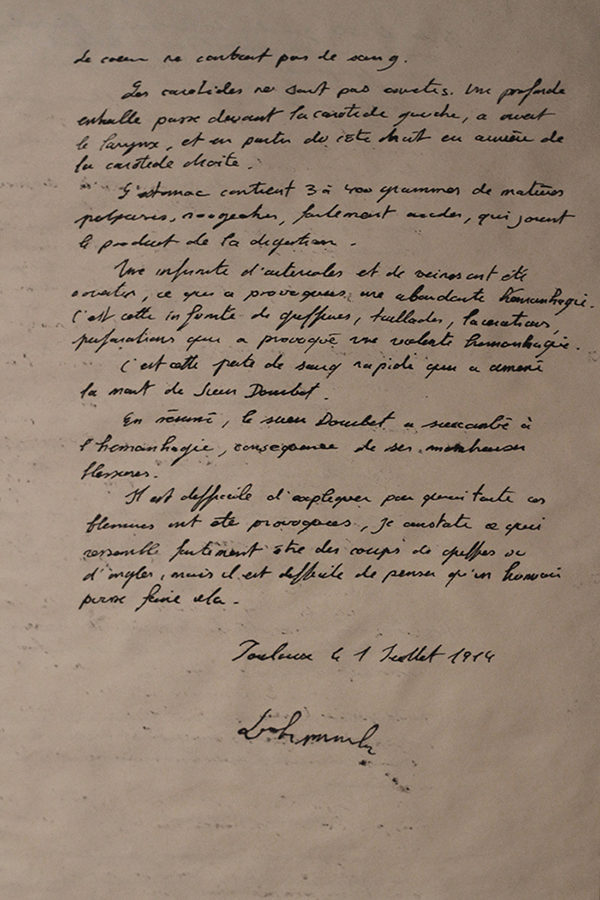 Le coeur ne contient pas de sang.
Les carotides ne sont pas ouvertes. Une profonde
entaille passe devant la carotide gauche, a ouvert
le larynx, et en partie du côté droit en arrière de
la carotide droite.
L'estomac contient 3 à 400 grammes de matières
rougeatres, fortement acides, qui sont
le produit de la digestion.
Une infinité d'artérioles et de veines ont été
ouvertes, ce qui a provoqué une abondante hémorrhagie.
C'est cette infinité de griffures, taillades, lacérations,
perforations qui a provoqué une violente hémorrhagie.
C'est cette perte de sang rapide qui a amené
la mort de Sieur Doubet.
En résumé, le sieur Doubet a succombé à
l'hémorrhagie, conséquence de ses nombreuses
blessures.
Il est difficile d'expliquer par quoi toute ces
blessures ont été provoquées, je constate ce qui
ressemble fortement être des coups de griffes ou
d'ongles, mais il est difficile de penser qu'un humain
puisse faire cela.
Toulouse le 1 Juillet 1914